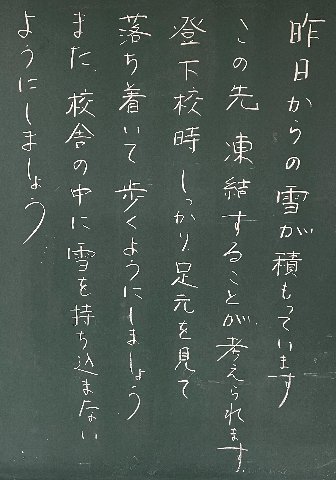 昨日からの雪が積もっています
この先 凍結することが考えられます
登下校時しっかり足元を見て
落ち着いて歩くようにしましょう
また 校舎の中に雪を持ち込まない
ようにしましょう